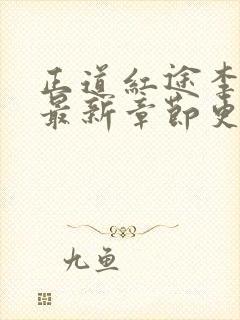 正道红途李
最新章节史
九鱼